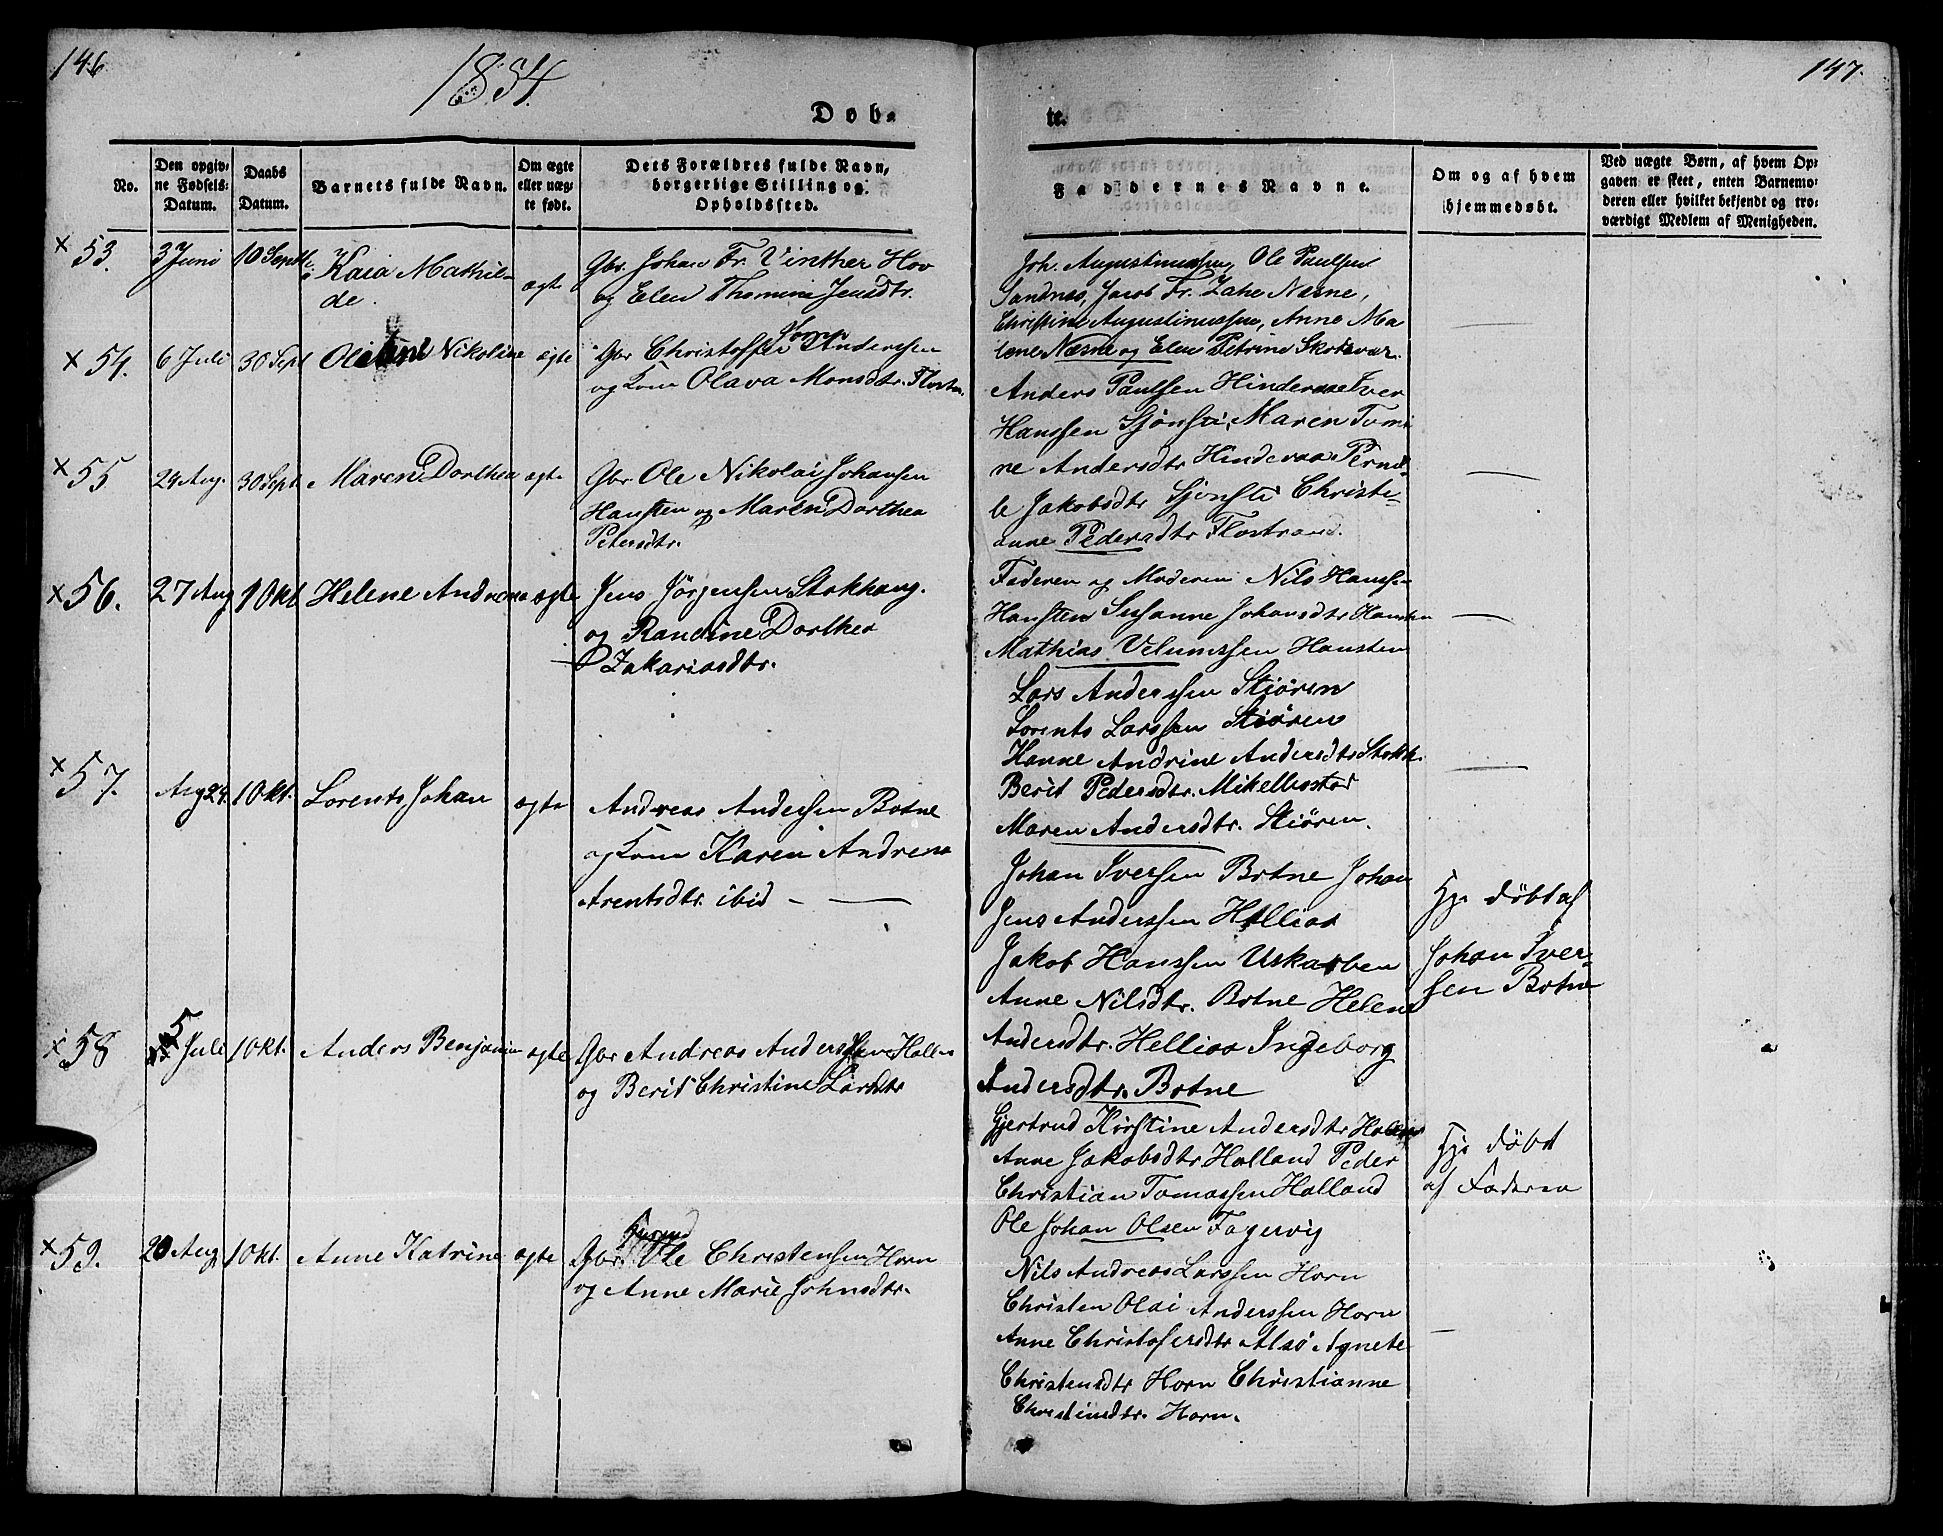 146
1834
147.
Døb-
te.
No.
Den opgiv-
ne Fødsels-
Datum.
Daabs
Datum.
Barnets fulde Navn.
Om ægte
eller uæg-
te født.
Dets Forældres fulde Navn,
borgerlige Stilling og
Opholdssted.
Faddernes Navne.
Om og af hvem
hjemmedøbt.
Ved uægte Børn, af hvem Op-
gaven er skeet, enten Barnemo-
deren eller hvilket bekjendt og tro-
værdigt Medlem af Menigheden.
× 53.
3 Juni
10 Sept
Kaia Mathil-
de.
ægte
Gbr. Johan Fr. Vinther Hov
og Elen Thomine Jensdtr.
Joh. Augustinussen, Ole Paulsen
Sandnæs, Jacob Fr. Zahe Næsne,
Christine Augustinussen, Anne Ma
lene Næsne og Elen Petrine Skotsvær.
× 54.
6 Juli
30 Sept
Nikoline
ægte
Gbr Christoffer Anderssen
og Kone Olava Monsdtr. Flostr.
Anders Paulssen Hinderaa Iver
Hanssen Sjønsti, Maren Tomi
ne Andersdtr Hinderaa Pernil
le Jakobsdtr Sjonsti Christi-
anne Pedersdtr Flostrand.
× 55
24 Aug.
30 Sept
Maren Dorthea
ægte
Gbr. Ole Nikolai Johansen
Hansten og Maren Dorthea
Petersdtr.
Faderen og Moderen Nils Hanssen
Hansten Susanne Johansdtr Hansten
Mathias Hansten
× 56.
27 Aug
1 Okt
Helene Andrea
ægte
Jens Jörgensen Stokhaug.
og Randine Dorthea
Zakariasdtr.
Lars Anderssen Stiören
Lorents Larssen Stiören
Hanne Andrine Andersdtr Stokh.
Berit Pedersdtr. Mikelbostad
Maren Andersdtr. Stiören.
× 57.
Aug 24.
1 Okt.
Lorents Johan
ægte
Andreas Anderssen Botne
og Kone Karen Andrea
Arentsdtr. ibid - —
Johan Iverssen Botne Johan
Jens Anderssen Hellias
Jakob Hanssen Uskarben
Anne Nilsdtr. Botne Helene
Andersdtr. Hellias Ingeborg
Andersdtr. Botne
Hj. døbt af
Johan Iver-
sen Botne
× 58
5
Juli
1 Okt.
Anders Benjamin
ægte
Gbr Andreas Anderssen
og Berit Christine Larsdtr
Gjertrud Kirstine Andersdtr
Anne Jakobsdtr Holland Peder
Christian Tomassen Holland
Ole Johan Olsen Fagervig
Hj. døbt
af Faderen
× 59.
20 Aug
1 Okt.
Anne Katrine
ægte
Gbr. Ole Christensen Horn
og Anne Marie Johnsdtr.
Nils Andreas Larssen Horn
Christen Olai Anderssen Horn
Anne Christofersdtr Alsö Agnete
Christensdtr Horn Christianne
Christensdtr. Horn.